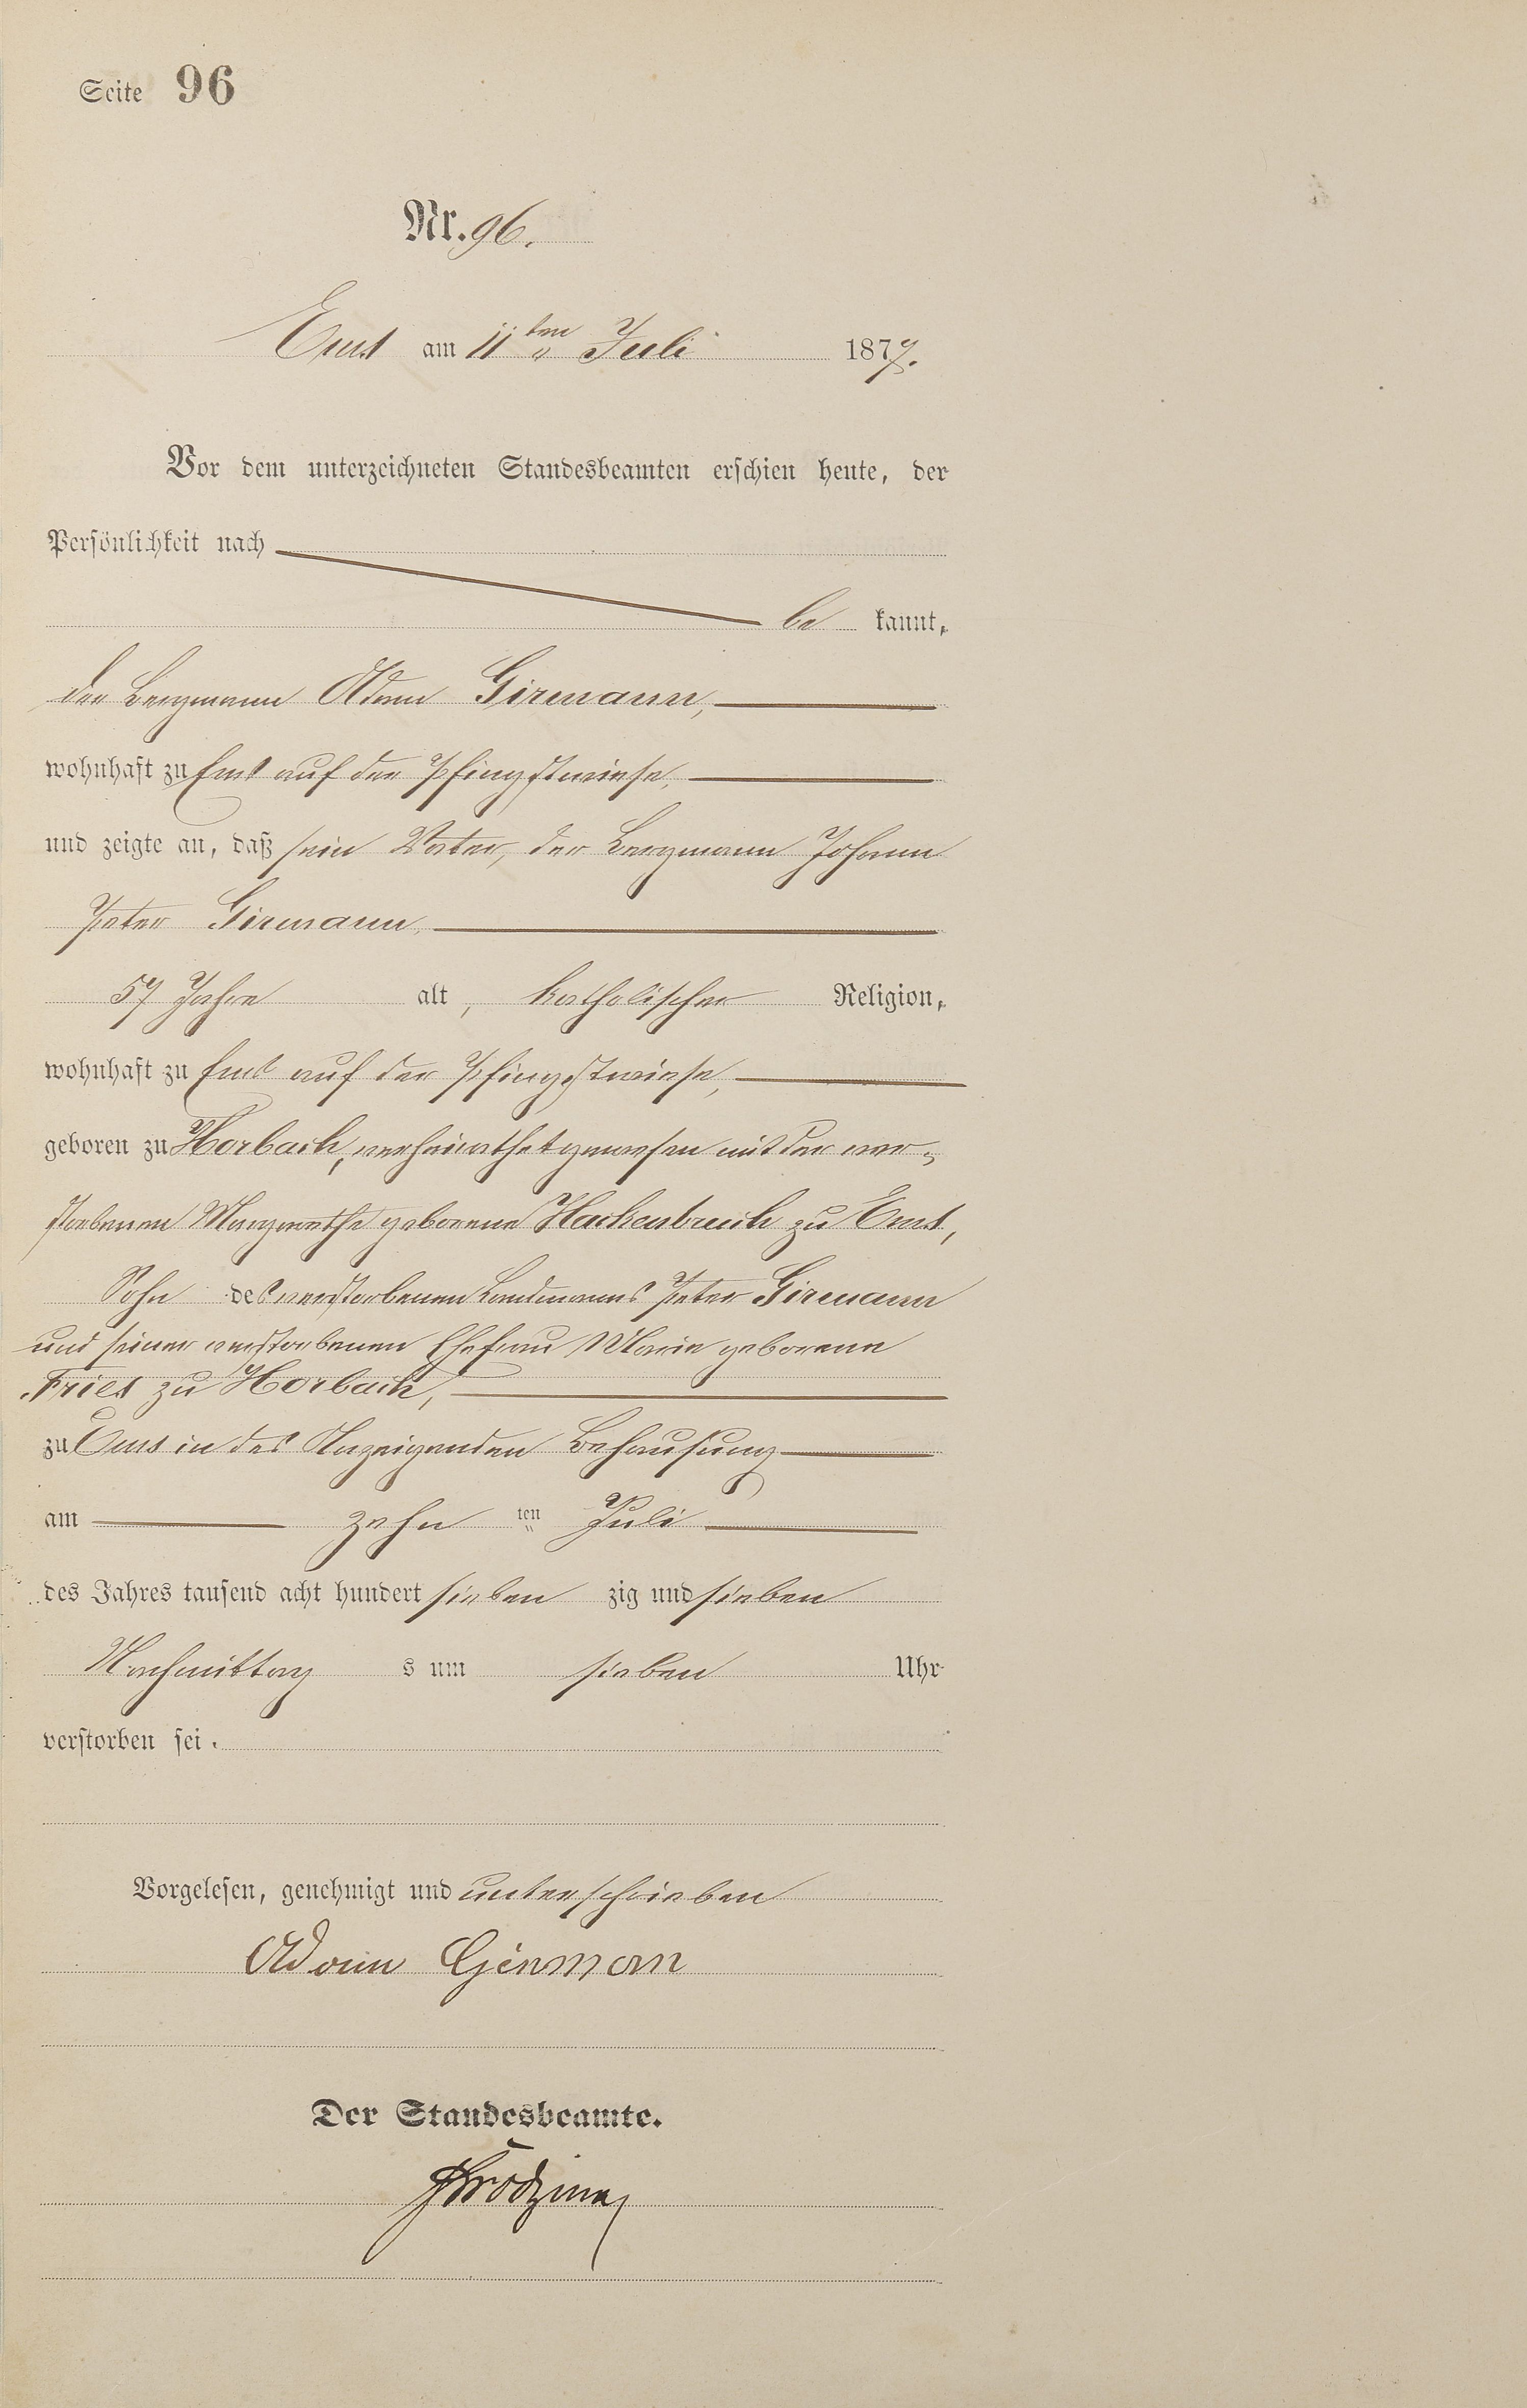 Seite 96
Nr. 96.
Ems am 11ten Juli 1877.
Vor dem unterzeichneten Standesbeamten erschien heute, der
Persönlichkeit nach
be kannt,
der Bergmann Adam Girmann,
wohnhaft zu Ems auf der Pfingstwiese,
und zeigte an, daß sein Vater, der Bergmann Johann
Peter Girmann,
57 Jahre alt, katholischer Religion,
wohnhaft zu Ems auf der Pfingstwiese,
geboren zu Horbach, verheirathet gewesen mit der ver-
storbenen Margarethe geborene Hachenbruch zu Ems,
Sohn des verstorbenen Landmanns Peter Girmann
und seiner verstorbenen Ehefrau Marie geborene
Fries zu Horbach,
zu Ems in des Anzeigenden Behausung
am zehn ten Juli
des Jahres tausend acht hundert sieben zig und sieben
Nachmittag s um sieben Uhr
verstorben sei.
Vorgelesen, genehmigt und unterschrieben
Adam Girman
Der Standesbeamte.